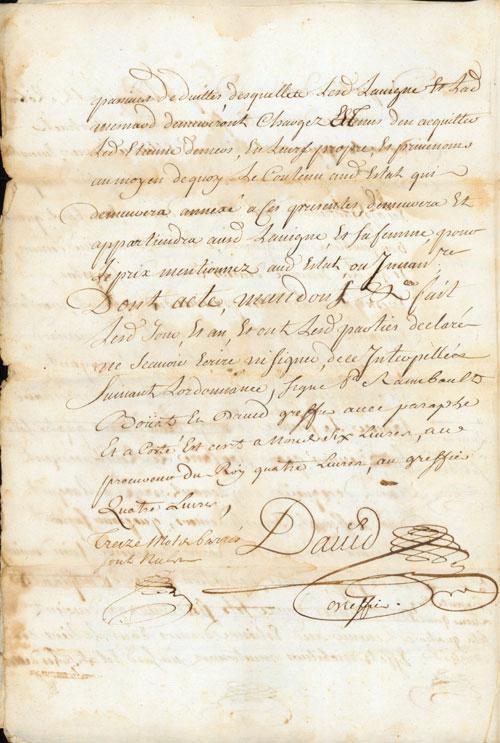 desquelles Lesd Lavigne Et Lad
menard demeureront Chargez Et tenus d'en acquitter
Led Etienne Et Leurs propre Et privé noms
au moyen de quoy Le Contenu aud Estat qui
demeurera annexé a Ces presentes demeurera Et
appartiendra aud Lavigne, Et sa femme pour
Le prix mentionnez aud Estat, ou Invanre
Dont acte, mandons &ca fait
Lesd Jour Et an, Et ont Lesd parties declaré
ne Scavoir Ecrire ni signer, de ce Interpellées
Suivant Lordonnance, signé Raimbault
Et David greffier avec paraphe
Et a Couté Est cent a Nous Six Livres, au
procureur du Roy quatre Livres, au greffier
Quatre Livres,
Treize Mots barrés
sont Nuls
David
Greffier.